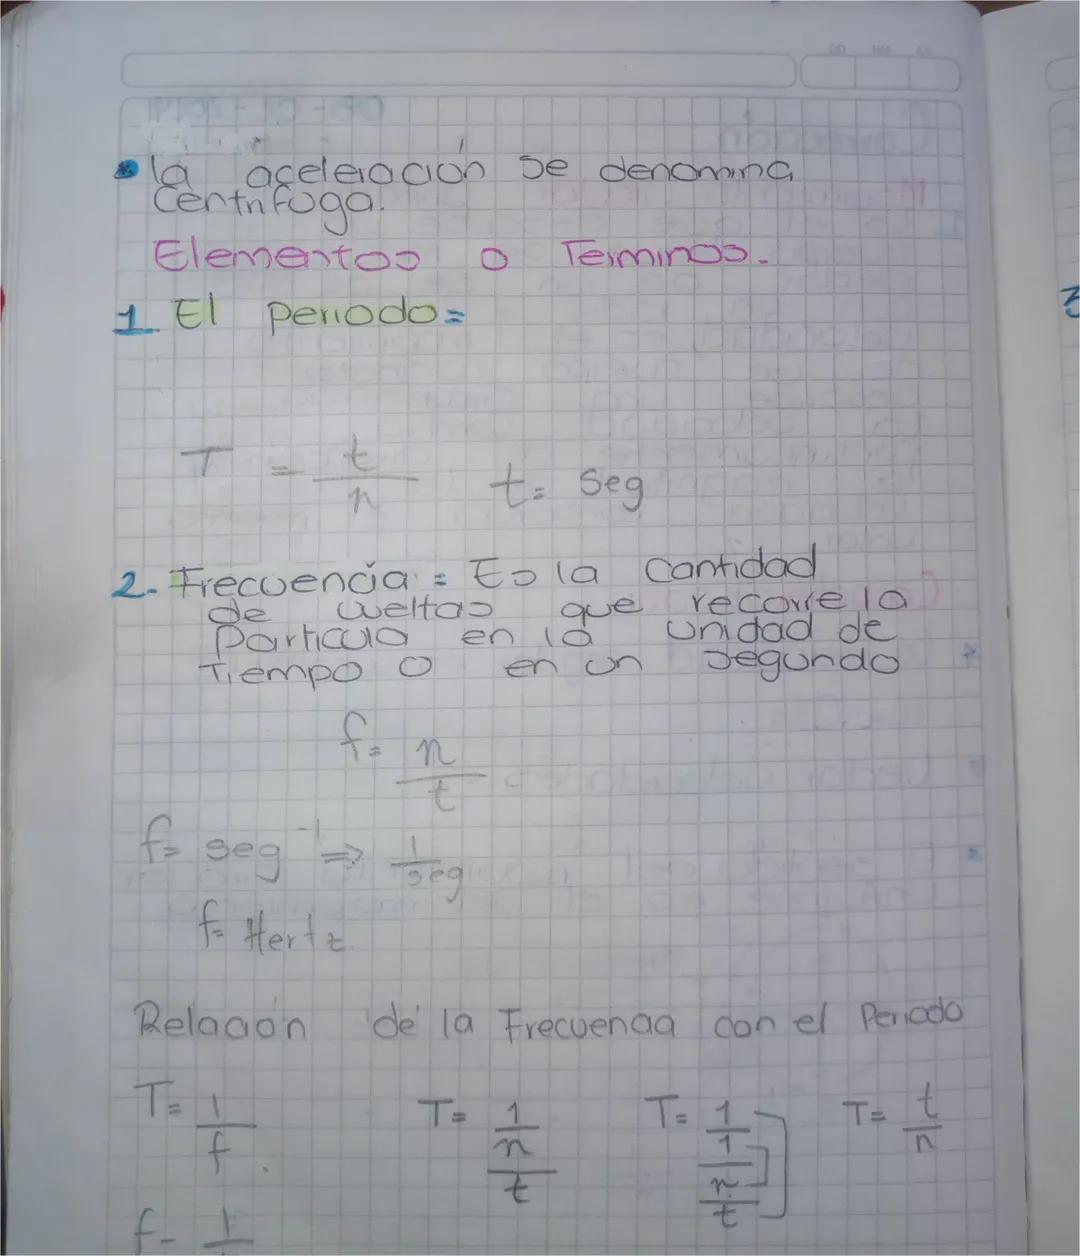 la aceleración se denomina
Centrifoga.
Elementos o Terminos.
1. El periodo=
T = t/n t= seg
2. Frecuencia = Es la Cantidad
de vueltas que recorre la
Particula en la unidad de
Tiempo o en un segundo
f= n/t
f= seg⁻¹ ⇒ 1/seg
f= Hertz
Relación de la Frecuencia con el Periodo
T= 1/f. T= 1/n/t T= 1/1/n/t T= t/n
f= 1